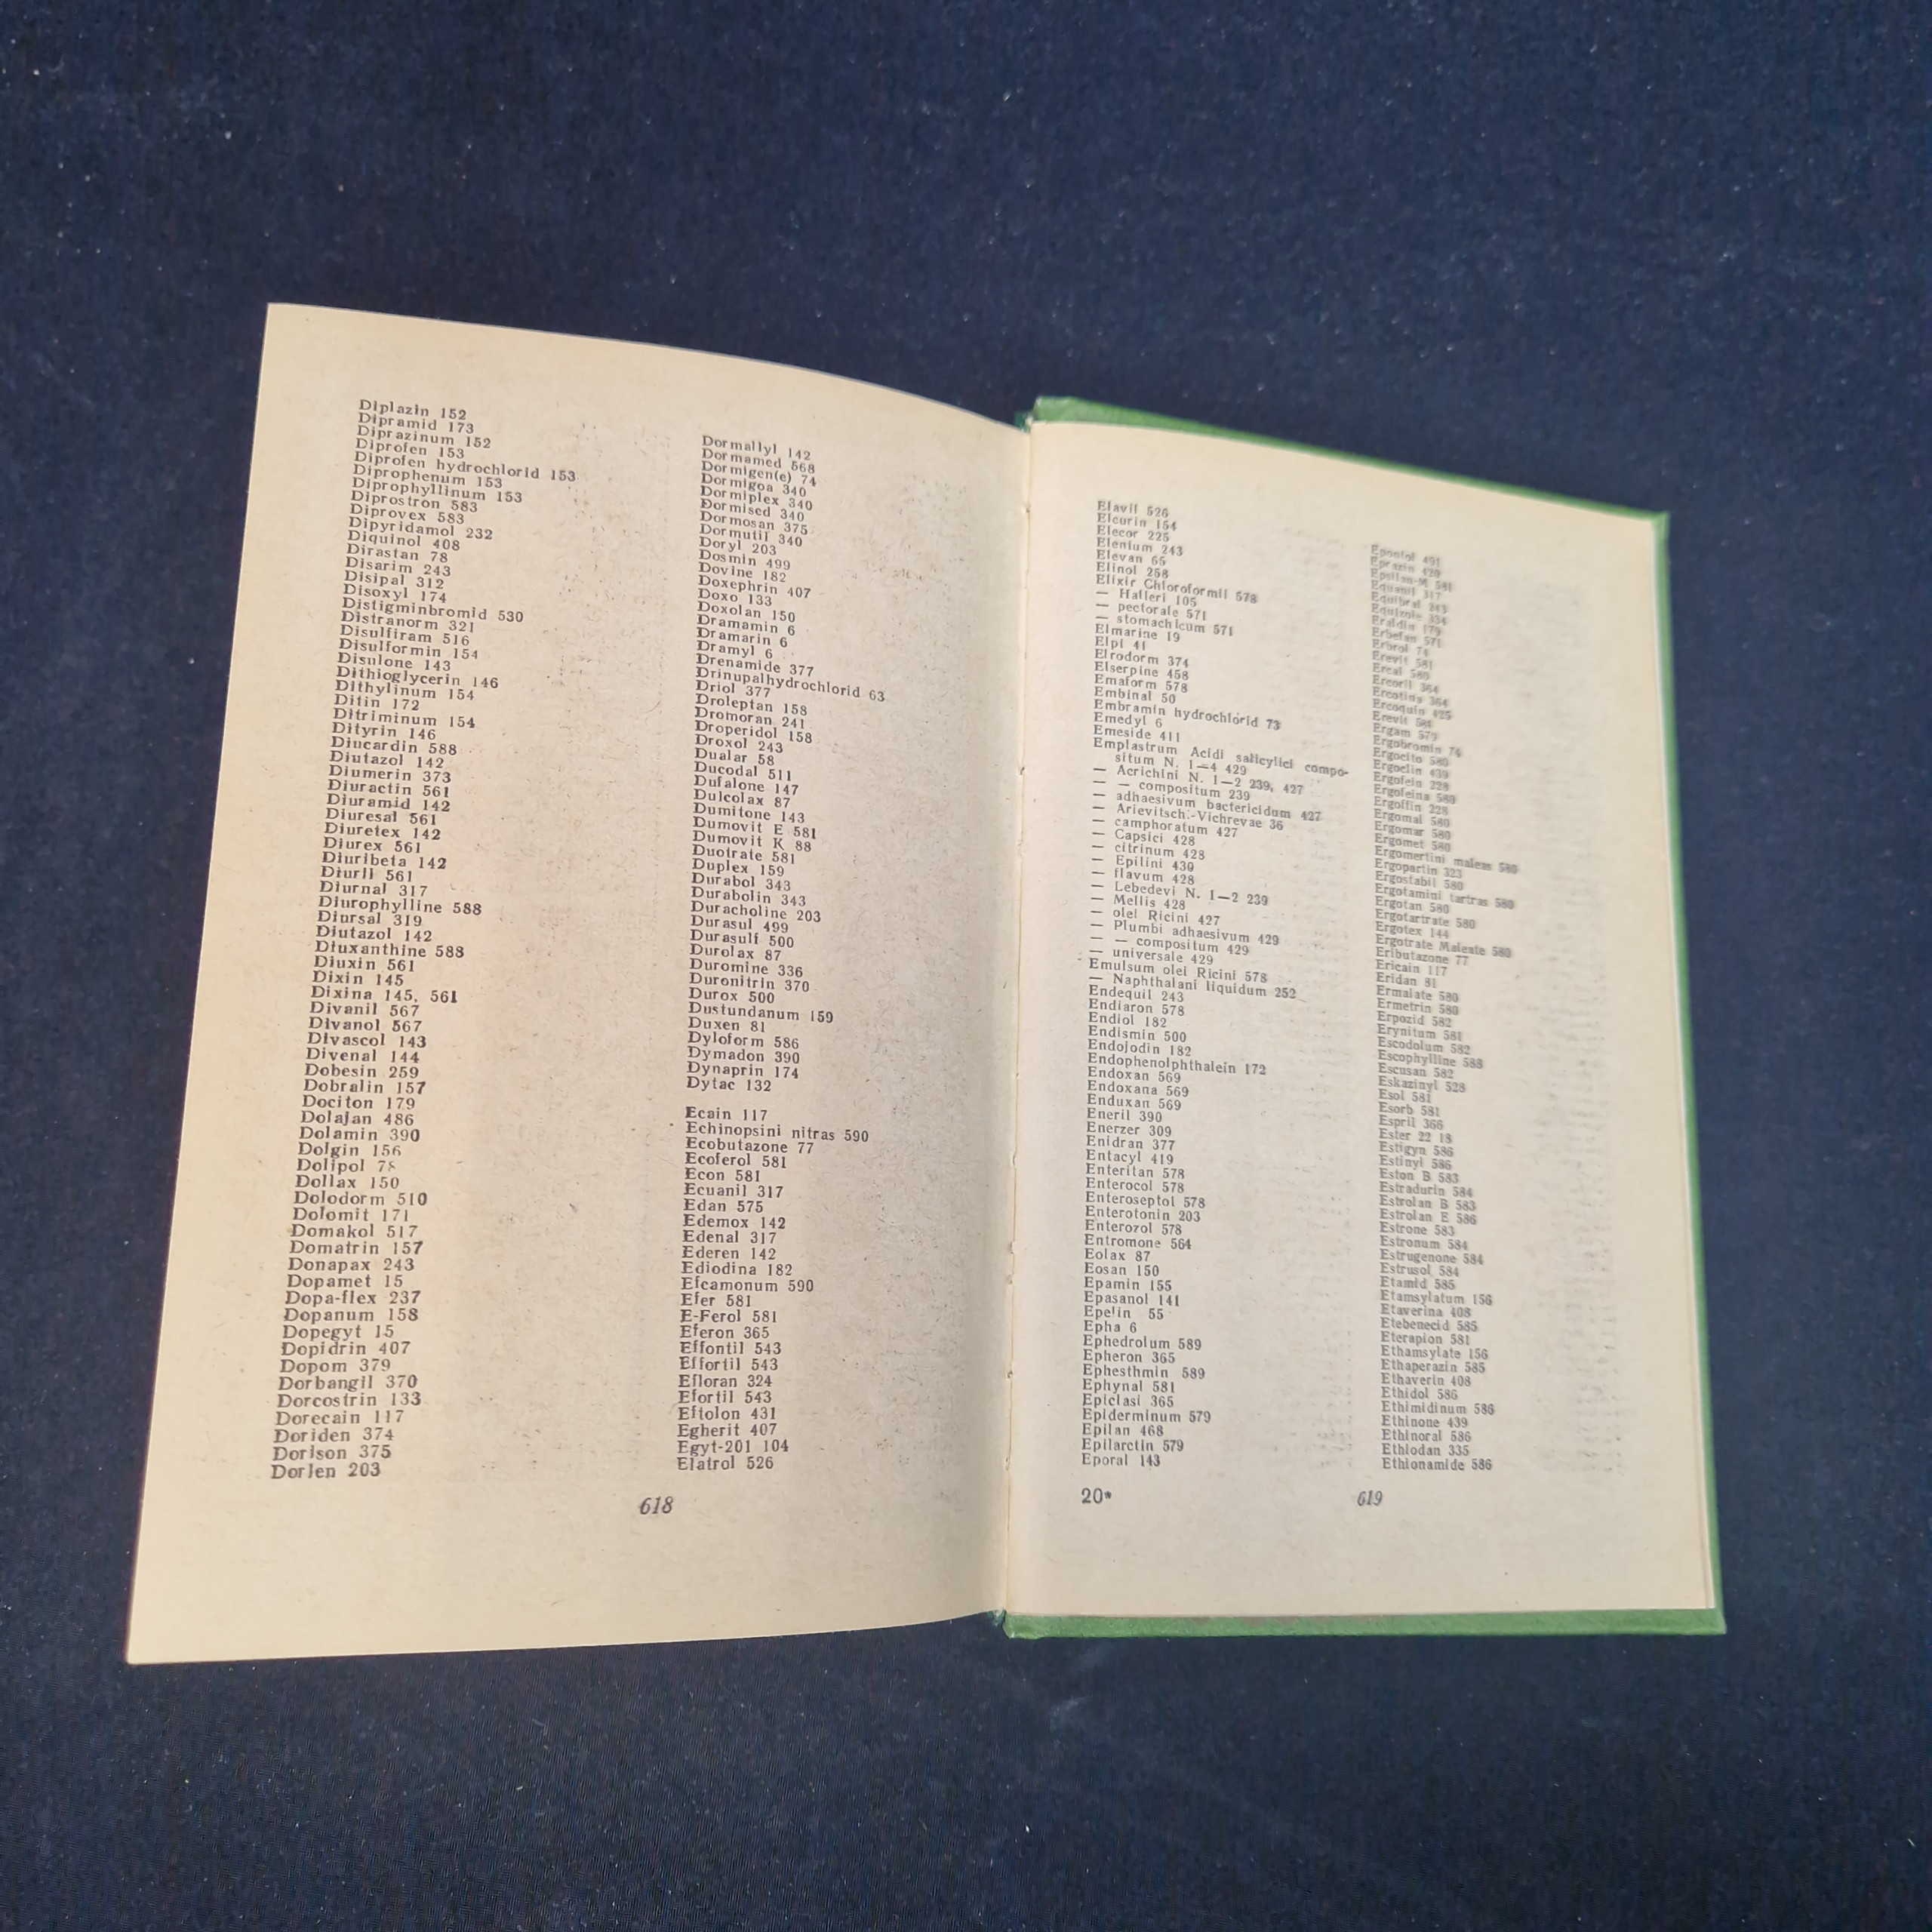 Diplazin 152
Dipramid 173
Diprazinum 152
Diprofen 153
Diprofen hydrochlorid 153
Diprophenum 153
Diprophyllinum 153
Diprostron 583
Diprovex 583
Dipyridamol 232
Diquinol 408
Dirastan 78
Disarim 243
Disipal 312
Disoxyl 174
Distigminbromid 530
Distranorm 321
Disulfiram 516
Disulformin 154
Disulone 143
Dithioglycerin 146
Dithylinum 154
Ditin 172
Ditriminum 154
Dityrin 146
Diucardin 588
Diutazol 142
Diumerin 373
Diuractin 561
Diuramid 142
Diuresal 561
Diuretex 142
Diurex 561
Diuribeta 142
Diurli 561
Diurnal 317
Diurophylline 588
Diursal 319
Diutazol 142
Diuxanthine 588
Diuxin 561
Dixin 145
Dixina 145, 561
Divanil 567
Divanol 567
Divascol 143
Divenal 144
Dobesin 259
Dobralin 157
Dociton 179
Dolajan 486
Dolamin 390
Dolgin 156
Dolipol 78
Dollax 150
Dolodorm 510
Dolomit 171
Domakol 517
Domatrin 157
Donapax 243
Dopamet 15
Dopa-flex 237
Dopanum 158
Dopegyt 15
Dopidrin 407
Dopom 379
Dorbangil 370
Dorcostrin 133
Dorecain 117
Doriden 374
Dorison 375
Dorlen 203
Dormallyl 142
Dormamed 568
Dormigen(e) 74
Dormigoa 340
Dormiplex 340
Dormised 340
Dormosan 375
Dormutil 340
Doryl 203
Dosmin 499
Dovine 182
Doxephrin 407
Doxo 133
Doxolan 150
Dramamin 6
Dramarin 6
Dramyl 6
Drenamide 377
Drinupalhydrochlorid 63
Driol 377
Droleptan 158
Dromoran 241
Droperidol 158
Droxol 243
Dualar 58
Ducodal 511
Dufalone 147
Dulcolax 87
Dumitone 143
Dumovit E 581
Dumovit K 88
Duotrate 581
Duplex 159
Durabol 343
Durabolin 343
Duracholine 203
Durasul 499
Durasulf 500
Durolax 87
Duromine 336
Duronitrin 370
Durox 500
Dustundanum 159
Duxen 81
Dyloform 586
Dymadon 390
Dynaprin 174
Dytac 132
Ecain 117
Echinopsini nitras 590
Ecobutazone 77
Ecoferol 581
Econ 581
Ecuanil 317
Edan 575
Edemox 142
Edenal 317
Ederen 142
Ediodina 182
Efcamonum 590
Efer 581
E-Ferol 581
Eferon 365
Effontil 543
Effortil 543
Efloran 324
Efortil 543
Eftolon 431
Egherit 407
Egyt-201 104
Elatrol 526
618
Elavil 526
Elcurin 154
Elecor 225
Elenium 243
Elevan 65
Elinol 258
Elixir Chloroformii 578
— Halleri 105
— pectorale 571
— stomachicum 571
Elmarine 19
Elpi 41
Elrodorm 374
Elserpine 458
Emaform 578
Embinal 50
Embramin hydrochlorid 73
Emedyl 6
Emeside 411
Emplastrum Acidi salicylici compo-
situm N. 1—4 429
— Acrichini N. 1—2 239, 427
— — compositum 239
— adhaesivum bactericidum 427
— Arievitsch.-Vichrevae 36
— camphoratum 427
— Capsici 428
— citrinum 428
— Epilini 430
— flavum 428
— Lebedevi N. 1—2 239
— Mellis 428
— olei Ricini 427
— Plumbi adhaesivum 429
— — compositum 429
— universale 429
Emulsum olei Ricini 578
— Naphthalani liquidum 252
Endequil 243
Endiaron 578
Endiol 182
Endismin 500
Endojodin 182
Endophenolphthalein 172
Endoxan 569
Endoxana 569
Enduxan 569
Eneril 390
Enerzer 309
Enidran 377
Entacyl 419
Enteritan 578
Enterocol 578
Enteroseptol 578
Enterotonin 203
Enterozol 578
Entromone 564
Eolax 87
Eosan 150
Epamin 155
Epasanol 141
Epelin 55
Epha 6
Ephedrolum 589
Epheron 365
Ephesthmin 589
Ephynal 581
Epiclasi 365
Epiderminum 579
Epilan 468
Epilarctin 579
Eporal 143
Epontol 491
Eprazin 420
Epsilan-M 581
Equanil 317
Equibral 243
Equizole 334
Eraldin 179
Erbefan 571
Erbrol 74
Erevit 581
Ercal 580
Ercoril 364
Ercotina 364
Ercoquin 425
Erevit 581
Ergam 579
Ergobromin 74
Ergocito 580
Ergoclin 439
Ergofein 228
Ergofeina 580
Ergoffin 228
Ergomal 580
Ergomar 580
Ergomet 580
Ergomertini maleas 580
Ergopartin 323
Ergostabil 580
Ergotamini tartras 580
Ergotan 580
Ergotartrate 580
Ergotex 144
Ergotrate Maleate 580
Eributazone 77
Ericain 117
Eridan 81
Ermalate 580
Ermetrin 580
Erpozid 582
Erynitum 581
Escodolum 582
Escophylline 588
Escusan 582
Eskazinyl 528
Esol 581
Esorb 581
Espril 366
Ester 22 18
Estigyn 586
Estinyl 586
Eston B 583
Estradurin 584
Estrolan B 583
Estrolan E 586
Estrone 583
Estronum 584
Estrugenone 584
Estrusol 584
Etamid 585
Etamsylatum 156
Etaverina 408
Etebenecid 585
Eterapion 581
Ethamsylate 156
Ethaperazin 585
Ethaverin 408
Ethidol 586
Ethimidinum 586
Ethinone 439
Ethinoral 586
Ethiodan 335
Ethionamide 586
20*
619